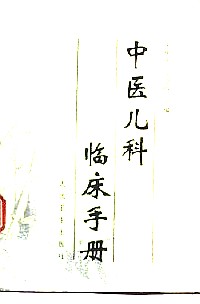 中医儿科
临床手册